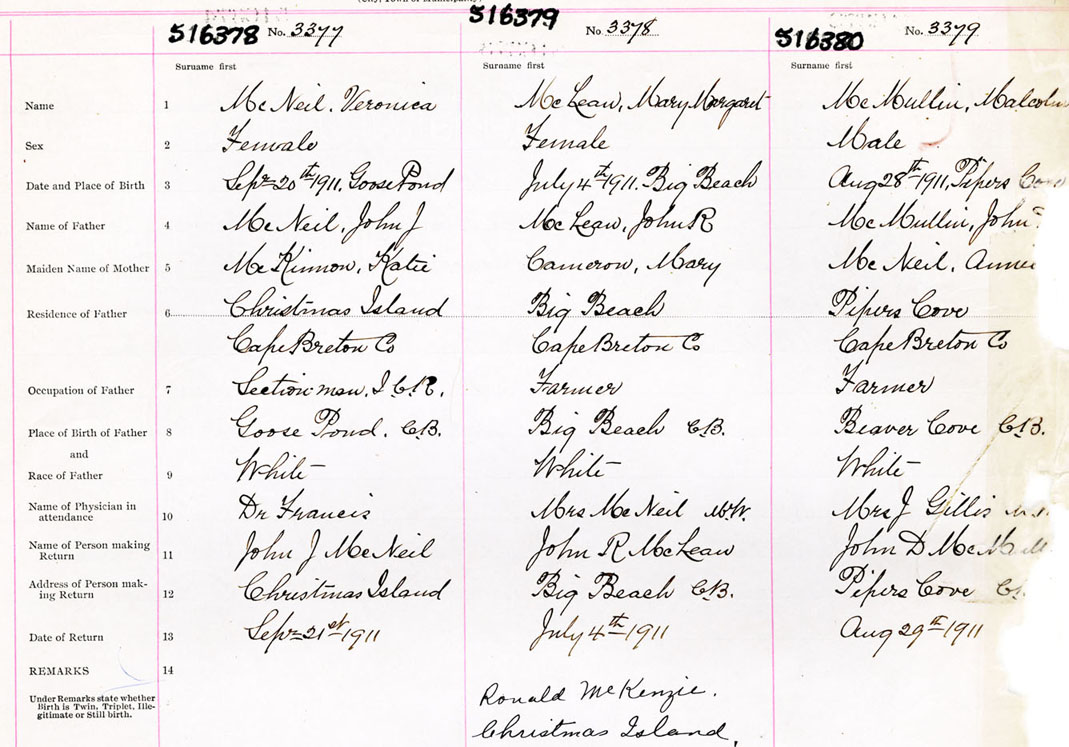 516378 No. 3377 516379 No. 3378 516380 No. 3379
Surname first Surname first Surname first
Name 1 McNeil, Veronica McLean, Mary Margaret McMullin, Malcolm
Sex 2 Female Female Male
Date and Place of Birth 3 Sepr 20th 1911, Goose Pond July 4th 1911, Big Beach Aug 28th 1911, Pipers Cove
Name of Father 4 McNeil, John J McLean, John R McMullin, John
Maiden Name of Mother 5 McKinnon, Katie Cameron, Mary McNeil, Annie
Residence of Father 6 Christmas Island Big Beach Pipers Cove
Cape Breton Co Cape Breton Co Cape Breton Co
Occupation of Father 7 Section man, I.C.R. Farmer Farmer
Place of Birth of Father 8 Goose Pond, C.B. Big Beach C.B. Beaver Cove C.B.
and
Race of Father 9 White White White
Name of Physician in
attendance 10 Dr Francis Mrs McNeil M.W. Mrs J Gillis
Name of Person making
Return 11 John J McNeil John R McLean John D McMull
Address of Person mak-
ing Return 12 Christmas Island Big Beach C.B. Pipers Cove
Date of Return 13 Sepr 21st 1911 July 4th 1911 Aug 29th 1911
REMARKS 14
Under Remarks state whether
Birth is Twin, Triplet, Ille-
gitimate or Still birth.
Ronald McKenzie.
Christmas Island,